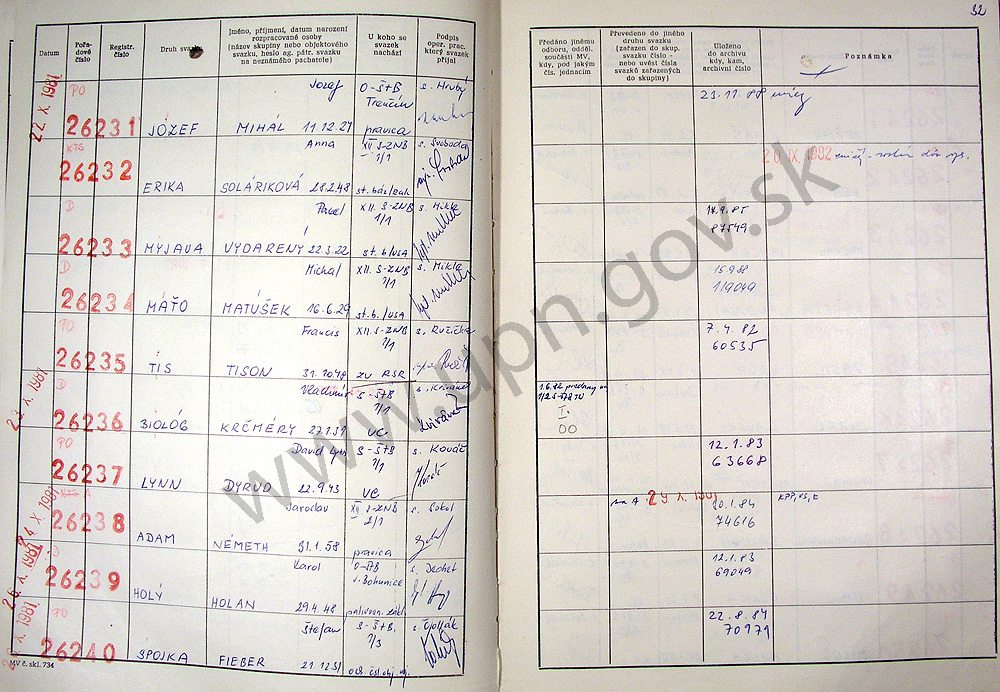 32
Datum
Pořadové číslo
Registr. číslo
Druh svazku
Jméno, příjmení, datum narození rozpracované osoby (název skupiny nebo objektového svazku, heslo ag. pátr. svazku na neznámého pachatele)
U koho se svazek nachází
Podpis oper. prac. který svazek přijal
Předáno jinému odboru, odděl. součásti MV, kdy, pod jakým čís. jednacím
Převedeno do jiného druhu svazku (zařazen do skup. svazku číslo - nebo uvést čísla svazků zařazených do skupiny)
Uloženo do archivu kdy, kam, archivní číslo
Poznámka
22. X. 1981
PO
26231
JÓZEF
Jozef
MIHÁL 11.12.27
O-ŠtB
Trenčín
pravica
s. Hrubý
23.11.88
KTS
26232
ERIKA
Anna
SOLÁRIKOVÁ 28.2.48
XII S-ZNB
1/1
s. Svoboda
20. IX. 1982
D
26233
MYJAVA
Pavel
VYDARENÝ 22.3.22
XII. S-ZNB
1/1
st. b/USA
s. Mikla
14.9.85
87549
D
26234
MAŤO
Michal
MATÚŠEK 16.6.29
XII. S-ZNB
1/1
st. b./USA
s. Mikla
15.9.88
119049
PO
26235
TIS
Francis
TISON 31.10.48
XII. S-ZNB
1/1
zv RSR
s. Ružička
7.4.82
60535
23. X. 1981
D
26236
BIOLÓG
Vladimír
KRČMÉRY 27.1.31
S-ŠtB
1/1
VC
1.6.82
I.
00
PO
26237
LYNN
David Lyn
DYRUD 22.9.43
S-ŠtB
1/1
VC
s. Kováč
12.1.83
63668
24. X. 1981
KTS A
26238
ADAM
Jaroslav
NÉMETH 31.1.58
XII S-ZNB
2/1
pravica
s. Sokol
29. X. 1981
20.1.84
74616
26. X. 1981
D
26239
HOLÝ
Karol
HOLAN 29.4.48
O-ŠtB
J. Bohunice
s. Dechet
12.1.83
69049
X. 1981
PO
26240
SPOJKA
Štefan
FIEBER 21.12.31
S-ŠtB.
1/3
22.8.84
70979
MV č. skl. 734
www.upn.gov.sk